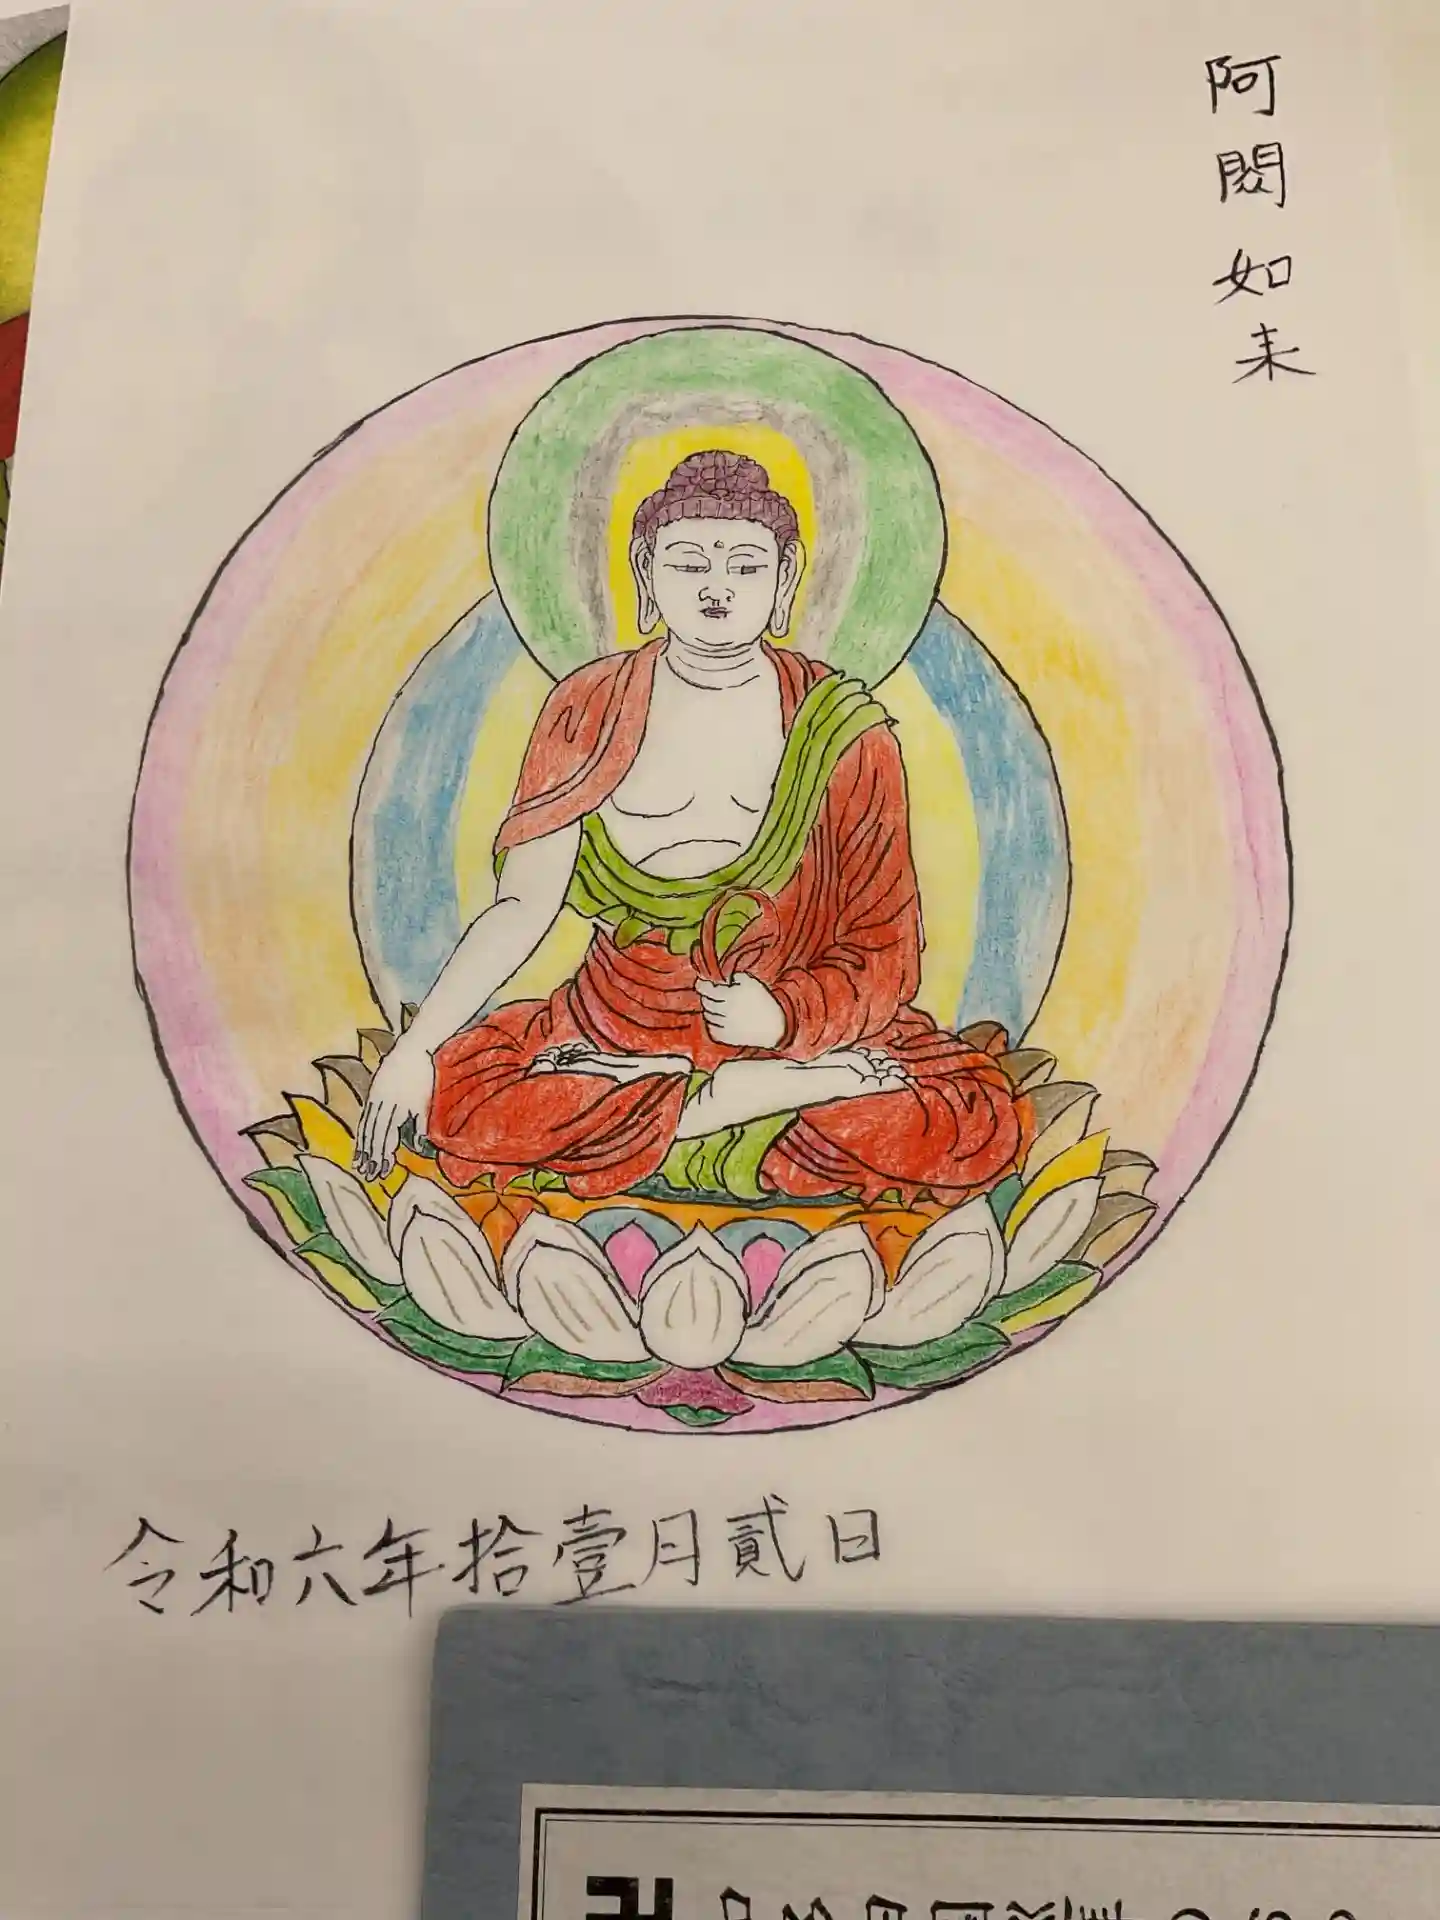 阿閦如来
令和六年拾壹月貳日